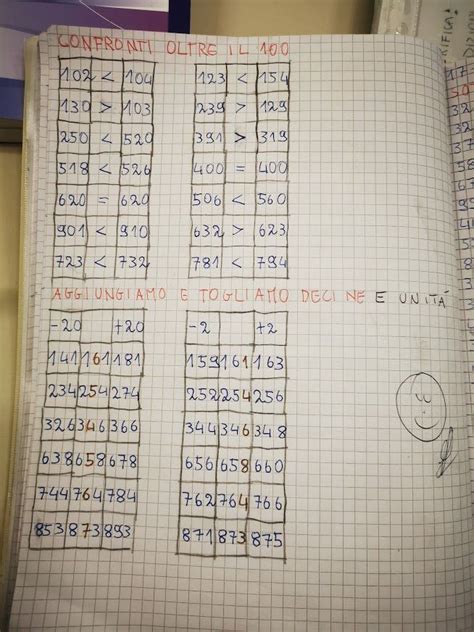 CONFRONTI OLTRE IL 100
102 < 104 123 < 154
130 > 103 239 > 129
250 < 520 391 > 319
518 < 526 400 = 400
620 = 620 506 < 560
901 < 910 632 > 623
723 < 732 781 < 794
AGGIUNGIAMO E TOGLIAMO DECINE E UNITÀ
-20 +20 -2 +2
141 161 181 159 161 163
234 254 274 252 254 256
326 346 366 344 346 348
638 658 678 656 658 660
744 764 784 762 764 766
853 873 893 871 873 875